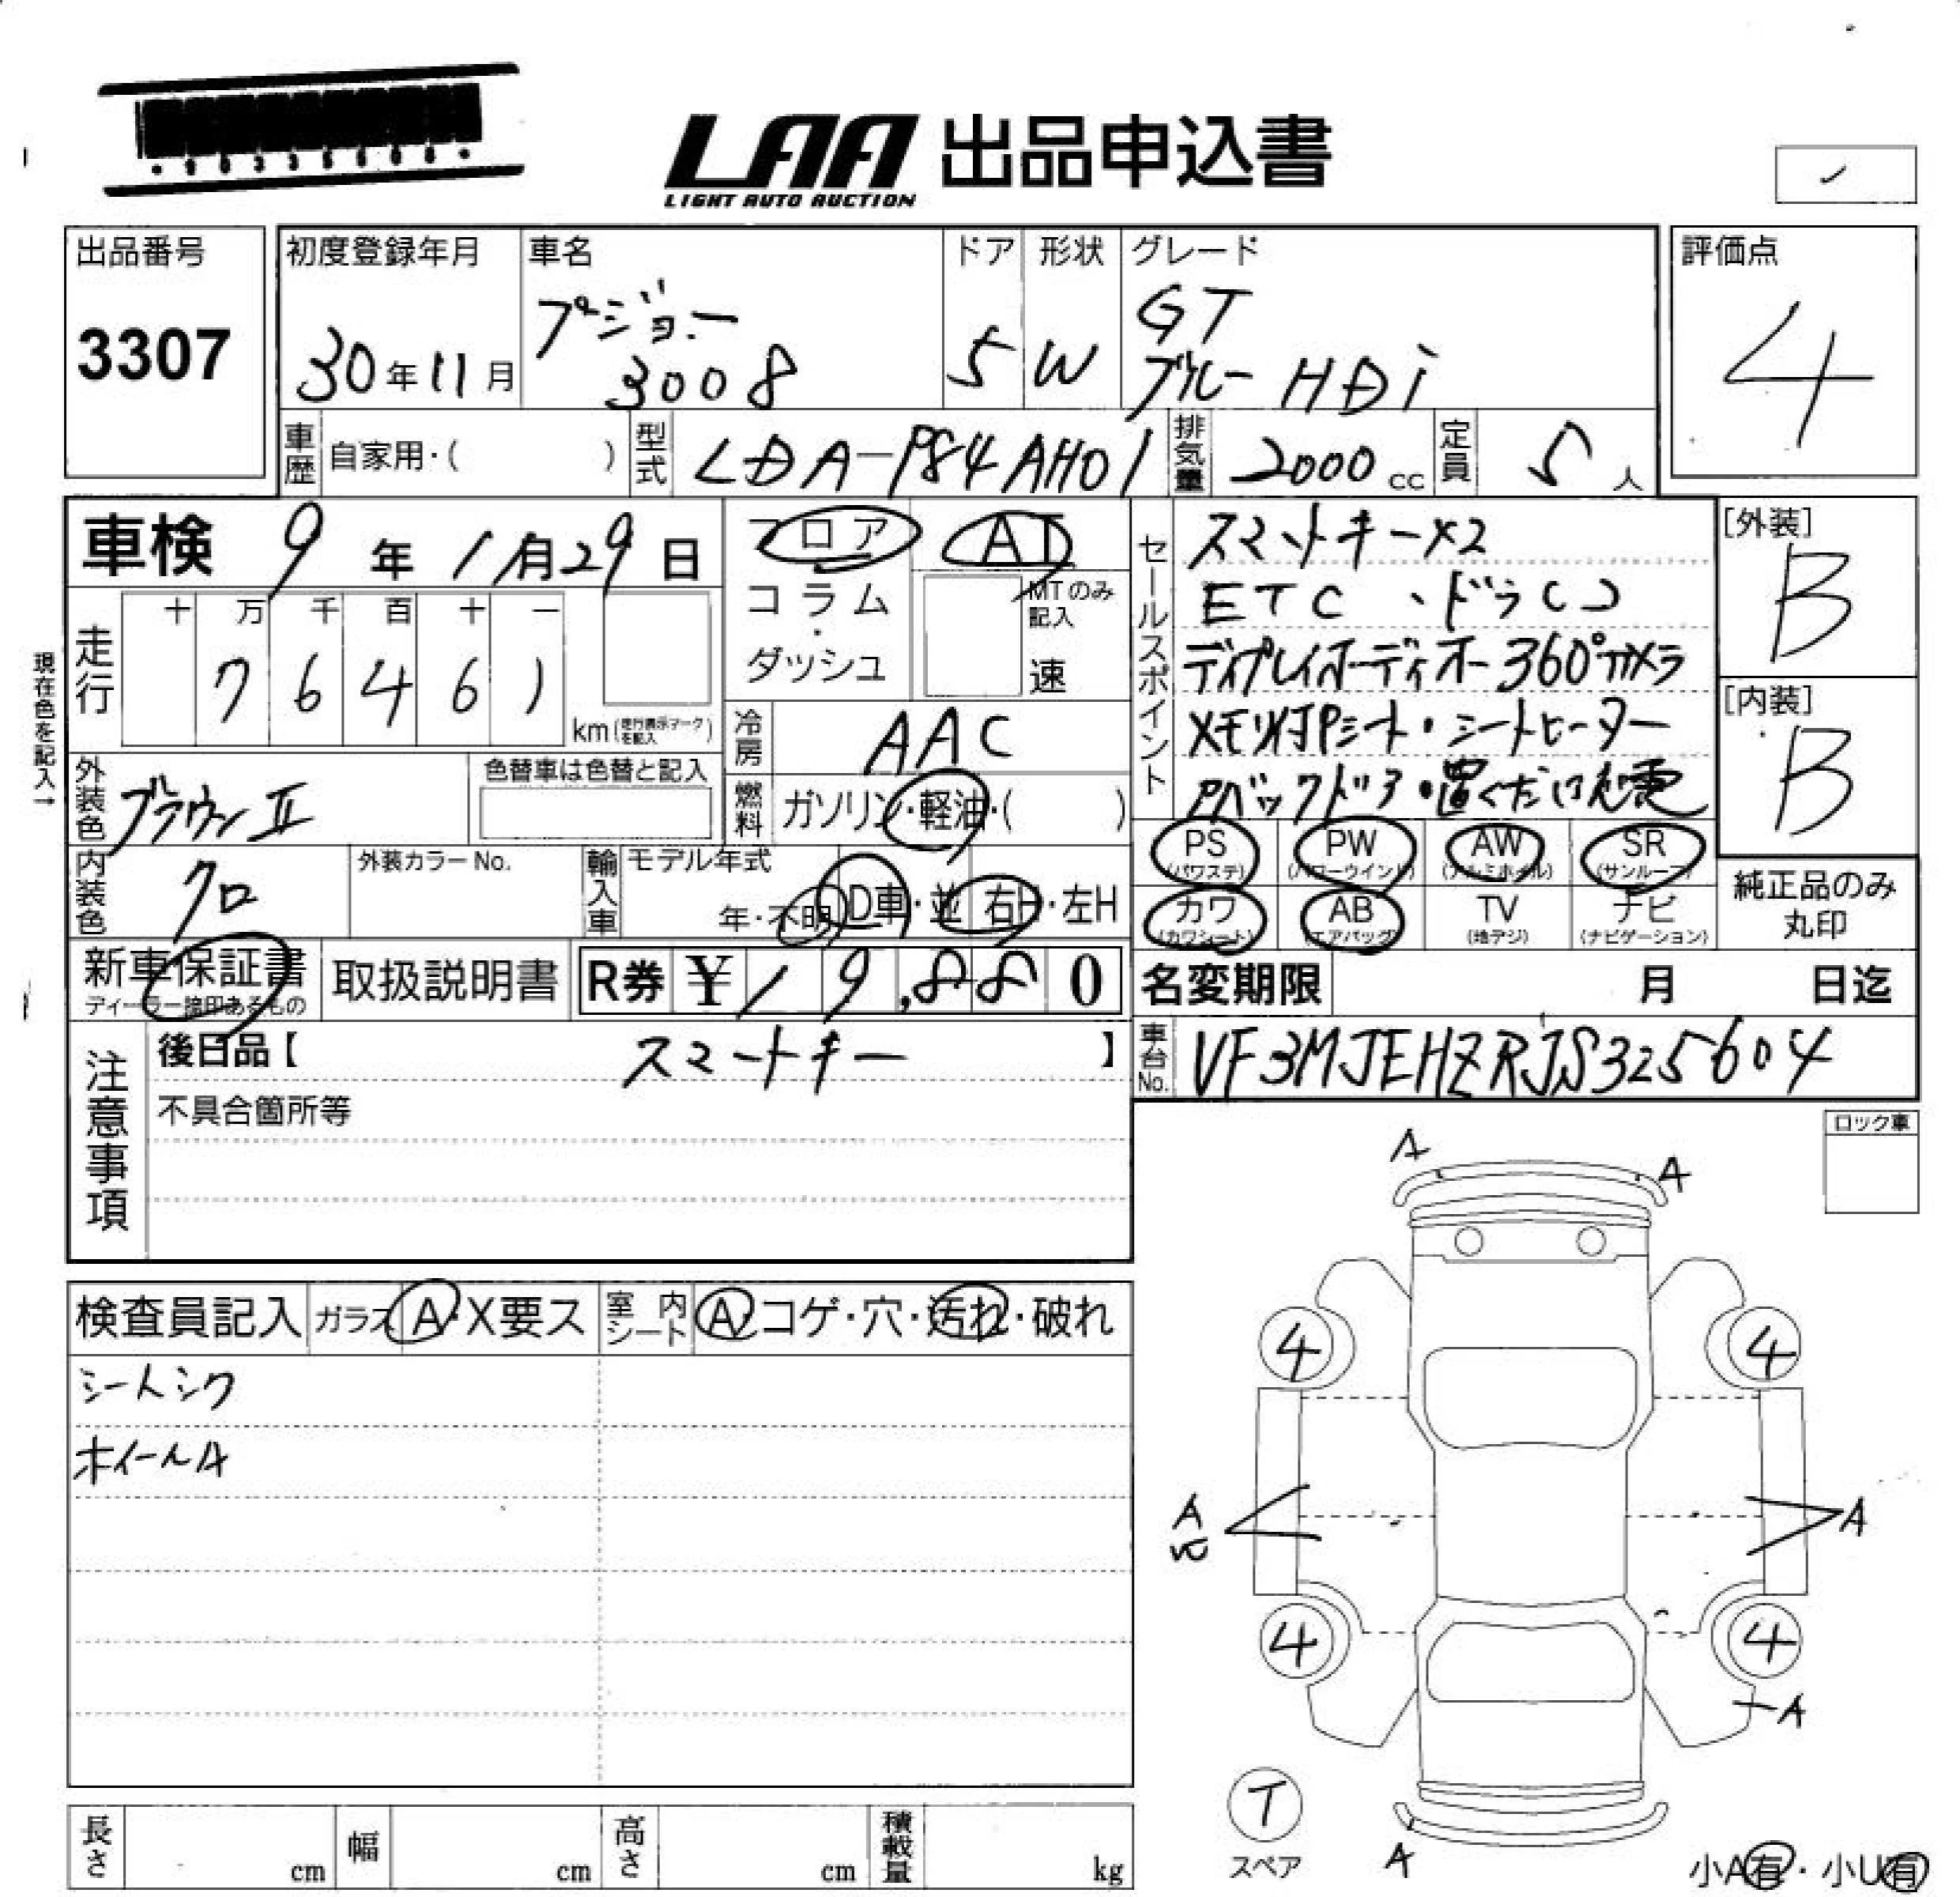 LAA 出品申込書
LIGHT AUTO AUCTION
出品番号
3307
初度登録年月
30年11月
車名
プジョー
3008
ドア
5
形状
W
グレード
GT
ブルーHDi
評価点
4
車歴 自家用・( )
型式 LDA-P84AH01
排気量 2000 cc
定員 5人
車検 9年1月29日
フロア
コラム
・
ダッシュ
AT
MTのみ記入
速
現在色を記入→
走行
十 万 千 百 十 一
7 6 4 6 1
km(走行表示マークを記入)
冷房 AAC
燃料 ガソリン・軽油・( )
外装色 ブラウンII
色替車は色替と記入
内装色 クロ
外装カラーNo.
輸入車 モデル年式
年・不明 D車・並 右H・左H
セールスポイント
スマートキー×2
ETC、ドラレコ
ディプレイオーディオー360°カメラ
メモリ付Pシート・シートヒーター
Pバックドア・置くだけ充電
[外装]
B
[内装]
B
PS (パワステ)
PW (パワーウインド)
AW (アルミホイル)
SR (サンルーフ)
カワ (カワシート)
AB (エアバッグ)
TV (地デジ)
ナビ (ナビゲーション)
純正品のみ
丸印
新車保証書
ディーラー捺印あるもの
取扱説明書
R券 ¥19,880
名変期限 月 日迄
車台No. VF3MJEHZRJS325604
注意事項
後日品【 スマートキー 】
不具合箇所等
ロック車
検査員記入 ガラス A・X要ス 室内シート A・コゲ・穴・汚れ・破れ
シートシワ
ホイールA
A A
4 4
A
A
4 4
A
T
スペア
A
小A有・小U有
長さ cm 幅 cm 高さ cm 積載量 kg